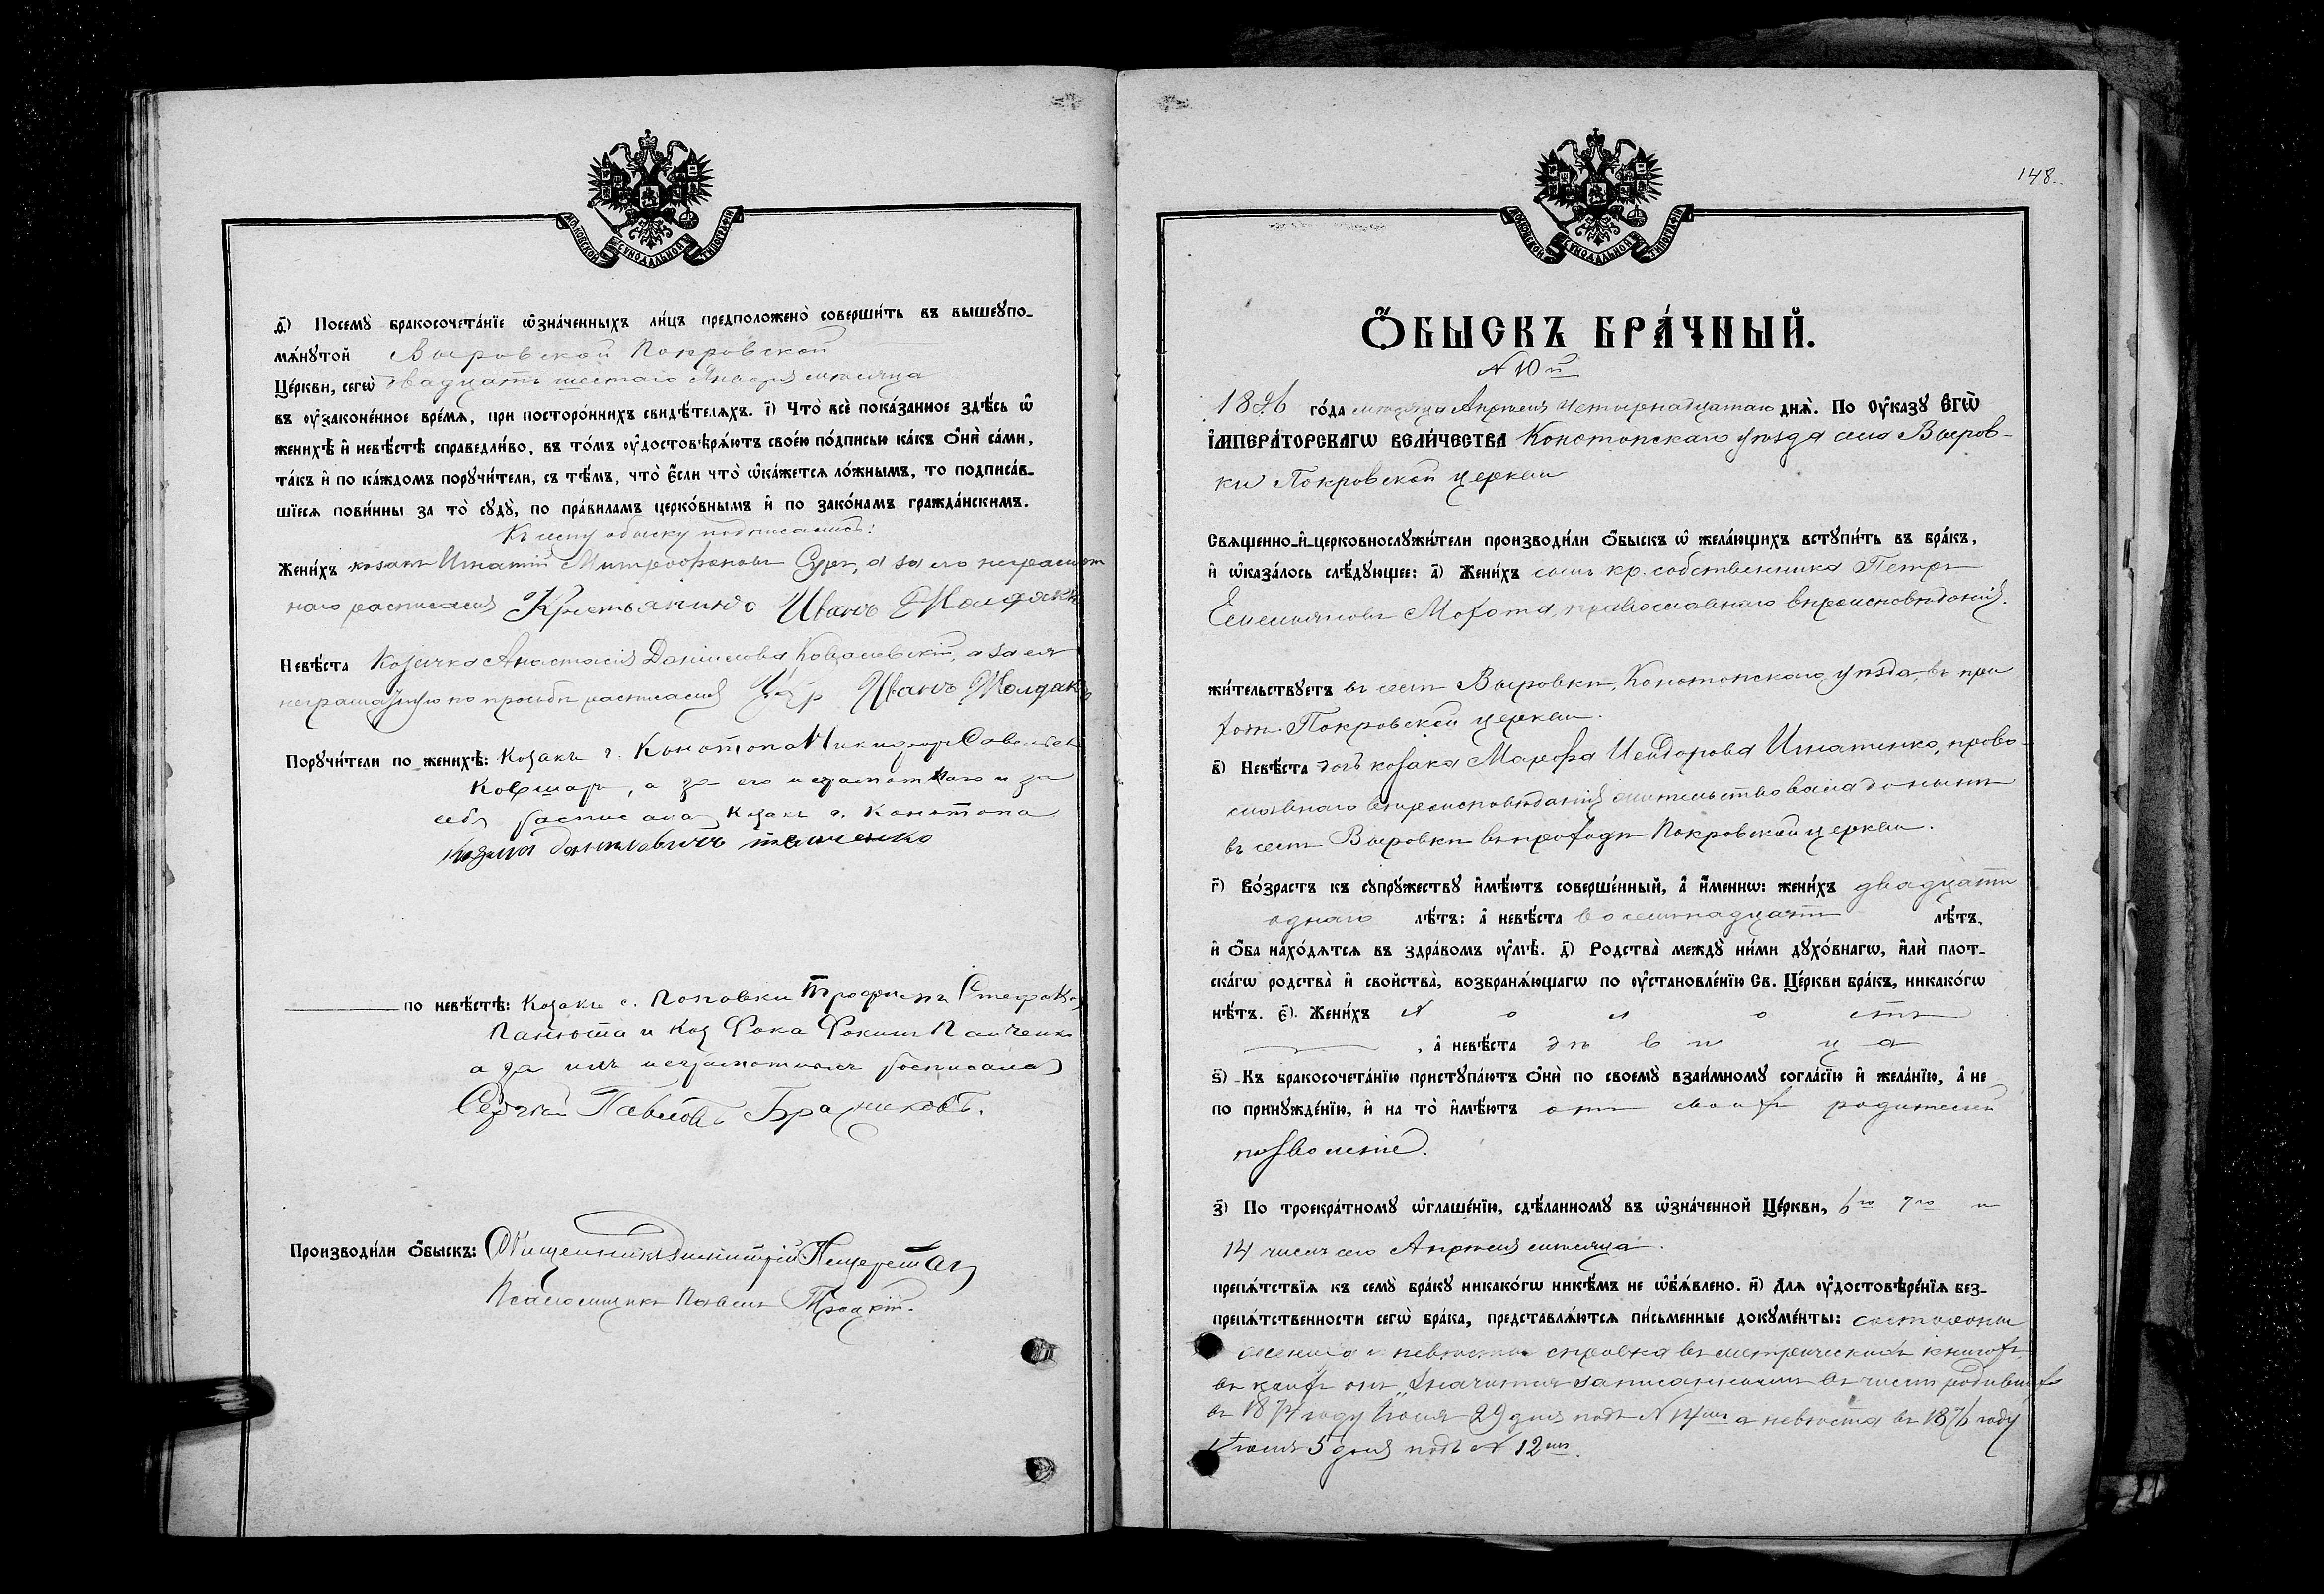 МОСКОВСКОЙ СѴНОДАЛЬНОЙ ТИПОГРАФІИ
ѳ҃) Посемꙋ̀ бракосочета́нїе ѡ҆зна́ченныхъ ли́цъ предположено̀ соверши́ть въ вышеꙋпо-
мѧ́нꙋтой Выровской Покровской
Це́ркви, сегѡ̀ двадцать шестаго Января месяца
въ ᲂу҆законе́нное вре́мѧ, при посторо́ннихъ свидѣ́телѧхъ. і҃) Что̀ всѐ пока́занное здѣ́сь ѡ҆
женихѣ̀ и҆ невѣ́стѣ справедли́во, въ то́мъ ᲂу҆достовѣрѧ́ютъ свое́ю по́дписью ка́къ ѻ҆нѝ са́ми,
та́къ и҆ по ка́ждомъ порꙋчи́тели, съ тѣ́мъ, что̀ є҆́сли что̀ ѡ҆ка́жетсѧ ло́жнымъ, то подписа́в-
шїесѧ пови́нны за то̀ сꙋдꙋ̀, по пра́виламъ церко́внымъ и҆ по зако́намъ гражда́нскимъ.
Къ сему обыску подписались:
Жени́хъ козакъ Игнатій Митрофановъ Суръ, а за его неграмот
наго росписался Крестьянинъ Иванъ
Невѣ́ста Козачка Анастасія Даніилова, а за ея
неграмотную по просьбѣ росписался Иванъ
Порꙋчи́тели по женихѣ̀: Козакъ г. Конотопа Никифоръ
Ковшарь, а за его неграмотнаго и за
себя росписался Козакъ г. Конотопа
по невѣ́стѣ: Козакъ с. Поповки Трофимъ
Панюта и Коз Фока Фокинъ Панченко
а за ихъ неграмотныхъ росписался
Сергѣй Павловъ Бражниковъ.
Производи́ли ѻ҆́быскъ: Священникъ Димитрій
Псаломщикъ Павелъ Троцкій.
148.
МОСКОВСКОЙ СѴНОДАЛЬНОЙ ТИПОГРАФІИ
Ѻ҆́БЫСКЪ БРА́ЧНЫЙ.
№ 10й
1896 го́да месяца Апреля четырнадцатаго днѧ̀. По Оу҆ка́зꙋ Є҆ГѠ̀
И҆МПЕРА́ТОРСКАГѠ ВЕЛИ́ЧЕСТВА Конотопскаго уѣзда села Выров-
ки Покровской церкви
Свѧщенно-и҆-церковнослꙋжи́тели производи́ли ѻ҆́быскъ ѡ҆ жела́ющихъ встꙋпи́ть въ бра́къ,
и҆ ѡ҆каза́лось слѣ́дꙋющее: а҃) Жени́хъ сынъ кр. собственника Петръ
Емельяновъ Мохота, православнаго вѣроисповѣданія.
жи́тельствꙋетъ въ селѣ Выровкѣ, Конотопскаго уѣзда, въ при
ходѣ Покровской церкви.
в҃) Невѣ́ста дочь козака Марфа Исидорова Игнатенко, право-
славнаго вѣроисповѣданія жительствовала до нынѣ
въ селѣ Выровкѣ въ приходѣ Покровской церкви.
г҃) Во́зрастъ къ сꙋпрꙋ́жествꙋ и҆мѣ́ютъ соверше́нный, а҆ и҆́меннѡ: жени́хъ двадцати
одного лѣ́тъ: а҆ невѣ́ста восемнадцати лѣ́тъ,
и҆ ѻ҆́ба нахо́дѧтсѧ въ здра́вомъ ᲂу҆мѣ̀. д҃) Родства̀ междꙋ̀ ни́ми дꙋхо́внагѡ, и҆лѝ плот-
ска́гѡ родства̀ и҆ свойства̀, возбранѧ́ющагѡ по ᲂу҆становле́нїю Св. Це́ркви бра́къ, никако́гѡ
нѣ́тъ. є҃). Жени́хъ холостъ
, а҆ невѣ́ста дѣвица
ѕ҃) Къ бракосочета́нїю пристꙋпа́ютъ ѻ҆нѝ по своемꙋ̀ взаи́мномꙋ согла́сїю и҆ жела́нїю, а҆ не
по принꙋжде́нїю, и҆ на то̀ и҆мѣ́ютъ отъ своихъ родителей
позволеніе.
з҃) По троекра́тномꙋ ѡ҆глаше́нїю, сдѣ́ланномꙋ въ ѡ҆зна́ченной Це́ркви, 6го 7го и
14 числъ сего Апреля месяца.
препѧ́тствїѧ къ семꙋ̀ бра́кꙋ никако́гѡ никѣ́мъ не ѡ҆б̾ѧ́влено. и҃) Длѧ ᲂу҆достовѣре́нїѧ без-
препѧ́тственности сегѡ̀ бра́ка, представлѧ́ютсѧ пи́сьменные докꙋме́нты: со стороны
жениха и невесты справка въ метрическихъ книгахъ,
въ коихъ онъ значится записаннымъ въ числѣ родивших
въ 1874 году Іюня 29 дня подъ № 14мъ а невеста въ 1876 году
5 дня подъ № 12мъ.